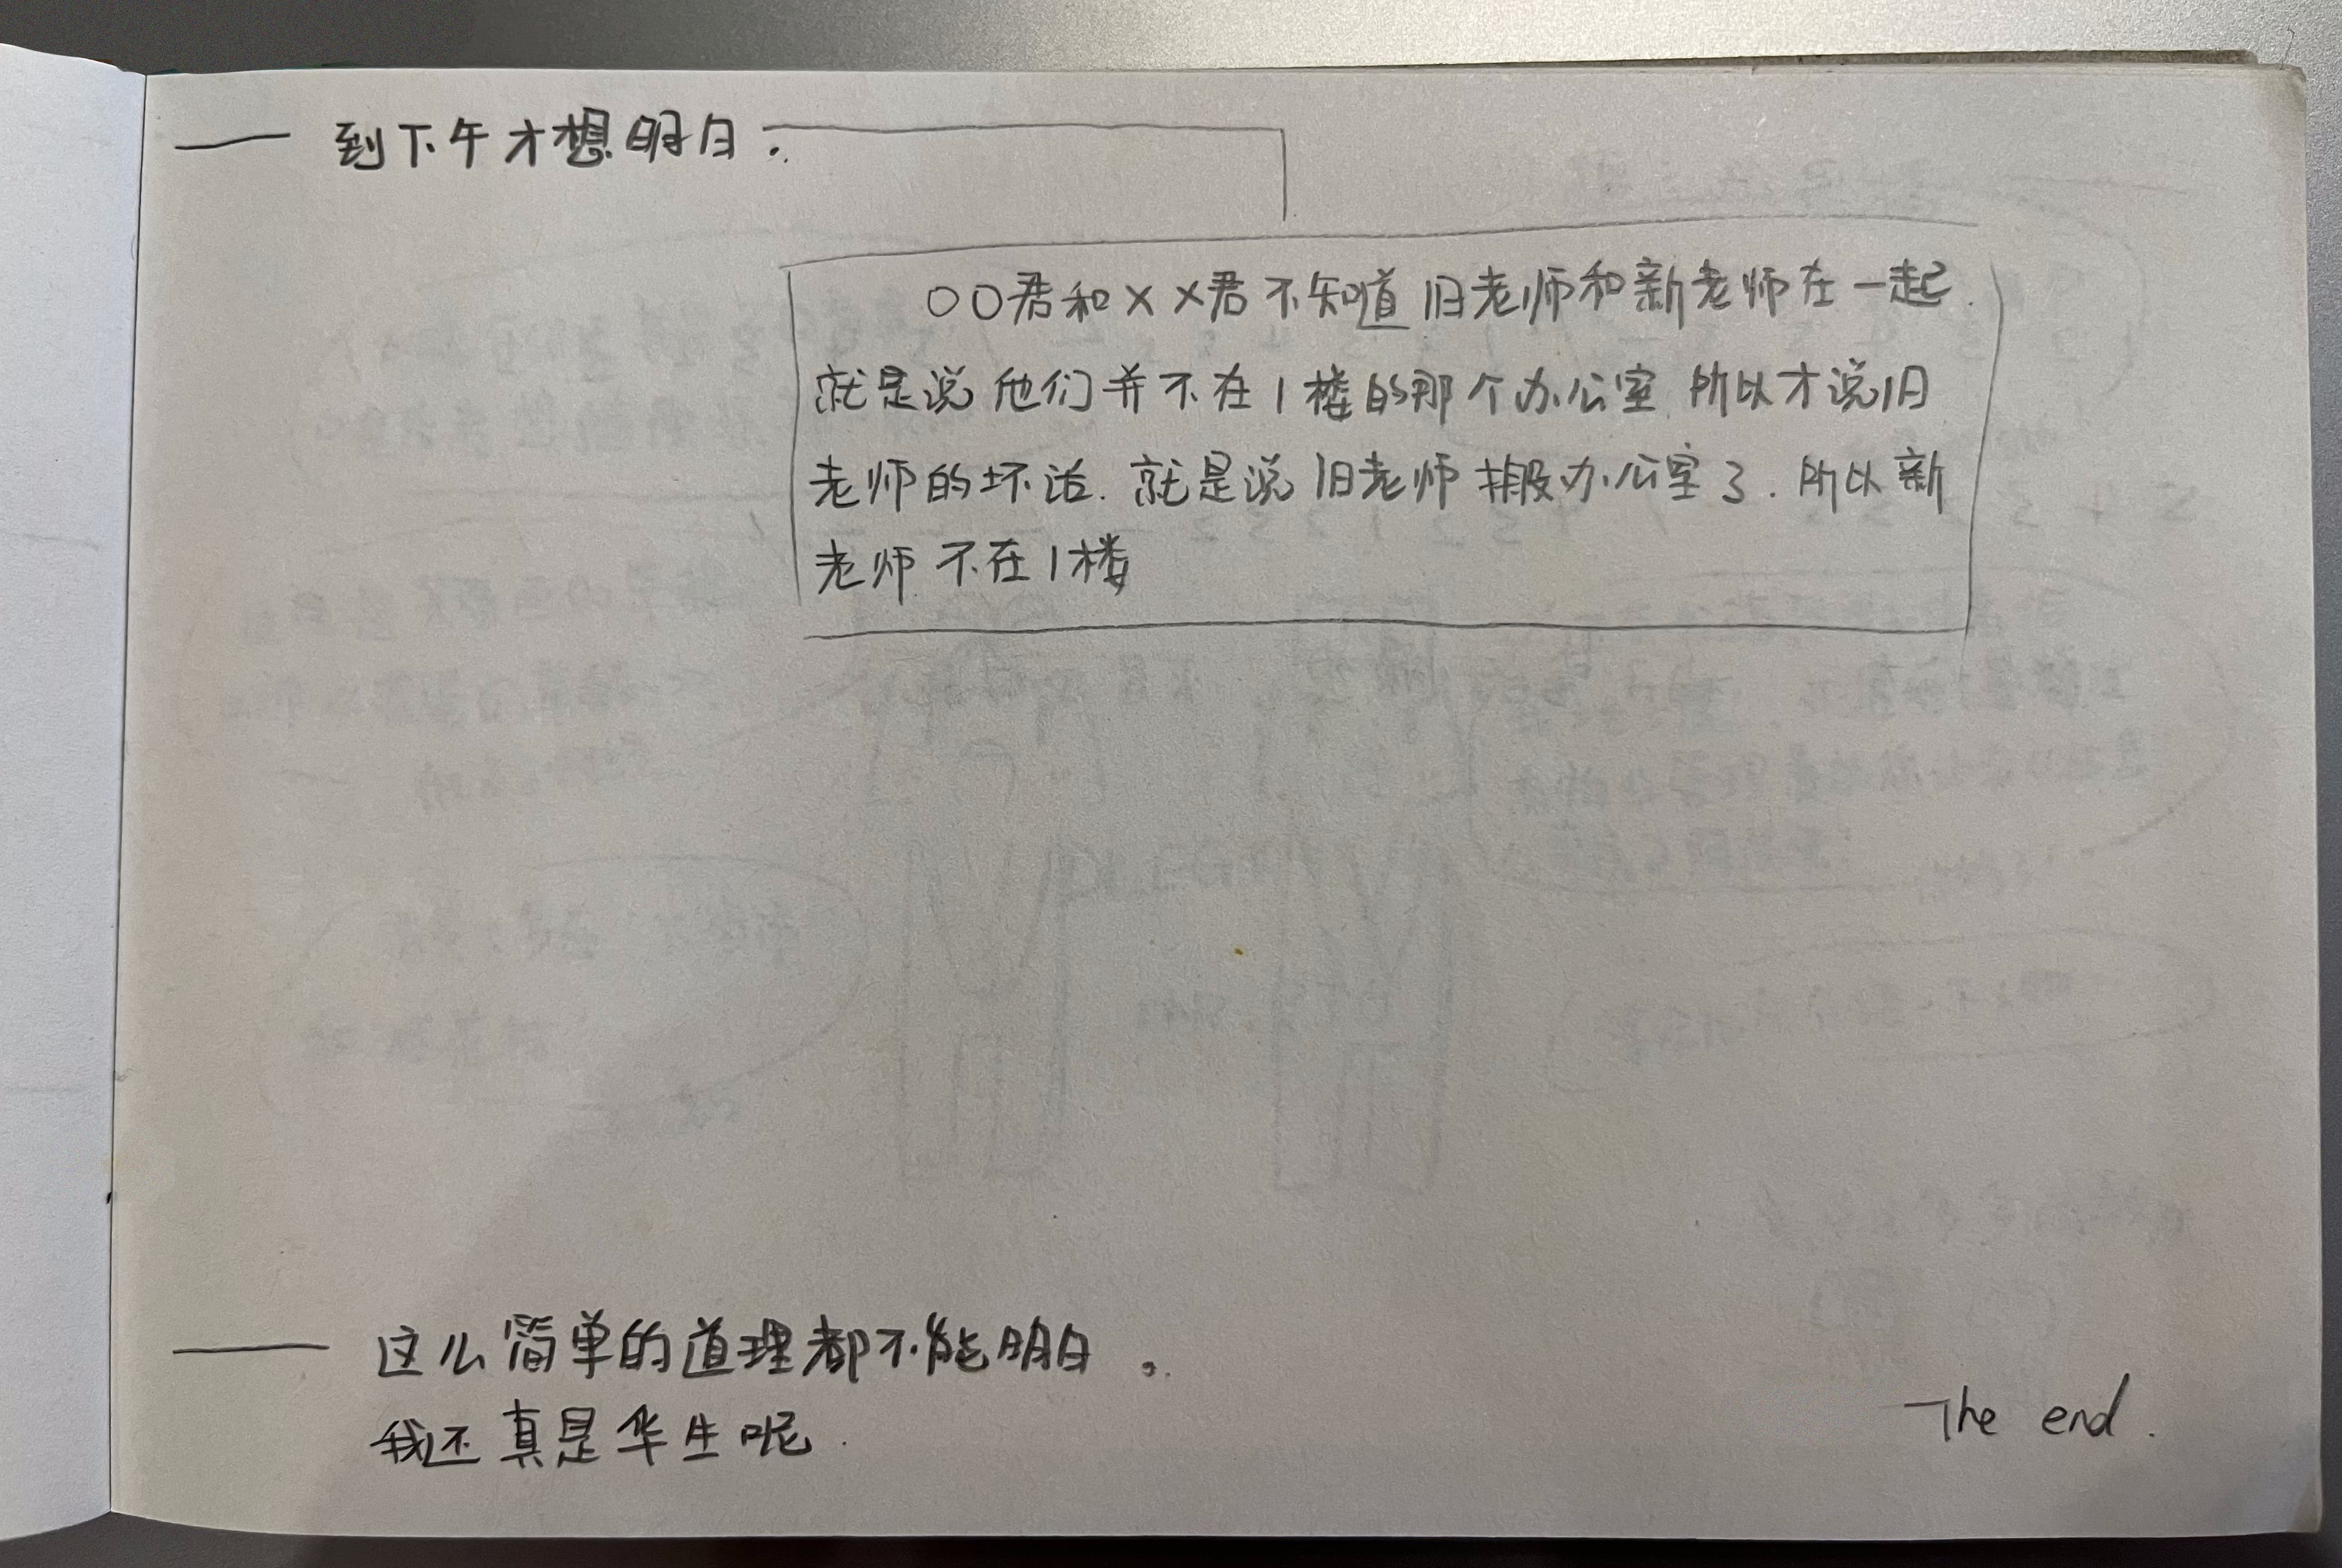 —— 到下午才想明白.
〇〇君和××君不知道旧老师和新老师在一起.
就是说他们并不在1楼的那个办公室.所以才说旧
老师的坏话.就是说旧老师搬办公室了.所以新
老师不在1楼
—— 这么简单的道理都不能明白。
我还真是华生呢.
The end.